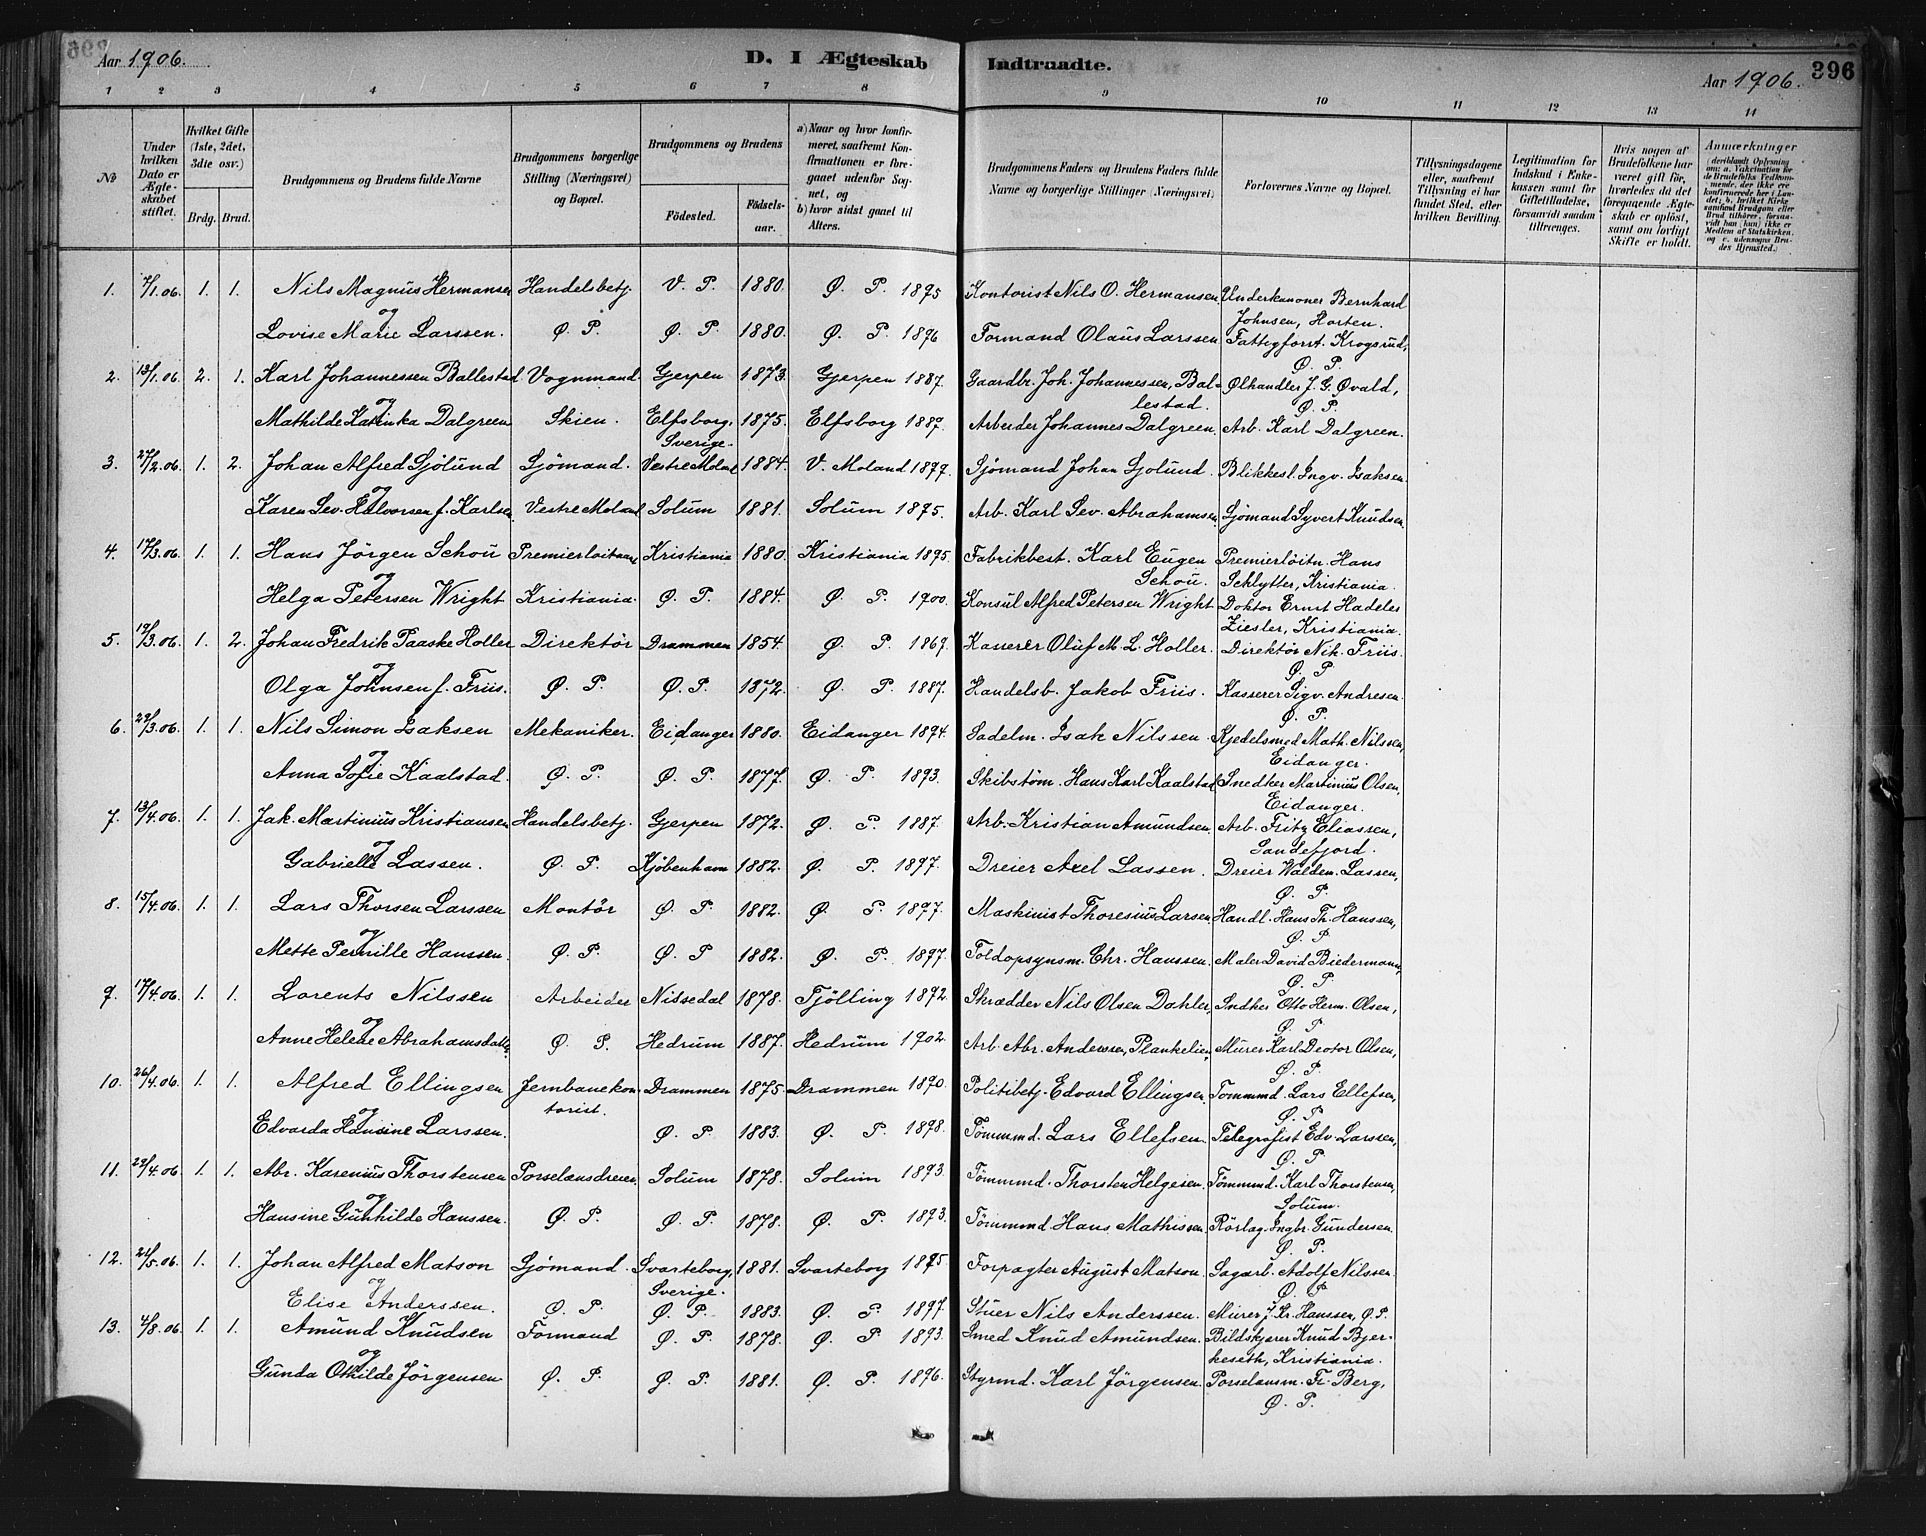 Aar 1906.
D. I Ægteskab Indtraadte.
Aar 1906. 396
1 2 3 4 5 6 7 8 9 10 11 12 13 14
No
Under hvilken Dato er Ægteskabet stiftet.
Hvilket Gifte (1ste, 2det, 3die osv.)
Brdg. Brud.
Brudgommens og Brudens fulde Navne
Brudgommens borgerlige Stilling (Næringsvei) og Bopæl.
Brudgommens og Brudens
Födested. Födsels-aar.
a) Naar og hvor konfirmeret, saafremt Konfirmationen er foregaaet udenfor Sognet, og b) hvor sidst gaaet til Alters.
Brudgommens Faders og Brudens Faders fulde Navne og borgerlige Stillinger (Næringsvei)
Forlovernes Navne og Bopæl.
Tillysningsdagene eller, saafremt Tillysning ei har fundet Sted, efter hvilken Bevilling.
Legitimation for Indskud i Enkekassen samt for Giftetilladelse, forsaavidt saadan tiltrænges.
Hvis nogen af Brudefolkene har været gift för, hvorledes da det foregaaende Ægteskab er oplöst, samt om lovligt Skifte er holdt.
Anmærkninger (deriblandt Oplysning om: a. Vakcination for de Brudefolks Vedkommende, der ikke ere konfirmerede her i Landet; b. hvilket Kirkesamfund Brudgom eller Brud tilhörer, forsaavidt han (hun) ikke er Medlem af Statskirken, og c. udensogns Brudes Hjemsted.)
1. 7/1.06. 1. 1. Nils Magnus Hermansen Handelsbetj. V. P. 1880. Ø. P. 1895 Kontorist Nils O. Hermansen Underkanoner Bernhard
og Johnsen, Horten.
Lovise Marie Larssen. Ø. P. Ø. P. 1880. Ø. P. 1896 Formand Olaus Larssen Fattigforst. Krogsrud,
Ø. P.
2. 13/1.06. 2. 1. Karl Johannessen Ballestad Vognmand Gjerpen 1873. Gjerpen 1887. Gaardbr. Joh. Johannessen, Bal- Ølhandler J. G. Øvald,
og lestad. Ø. P.
Mathilde Katinka Dalgreen Skien. Elfsborg, 1875. Elfsborg 1889. Arbeider Johannes Dalgreen. Arb. Karl Dalgreen.
Sverige.
3. 27/2.06. 1. 2. Johan Alfred Sjölund Sjömand. Vestre Moland 1884. V. Moland 1899. Sjömand Johan Sjölund. Blikkesl. Ingv. Isaksen.
og
Karen Sev. Halvorsen f. Karlsen. Vestre Moland Solum 1881. Solum 1895. Arb. Karl Sev. Abrahamsen. Sjömand Syvert Knudsen.
4. 17/3.06. 1. 1. Hans Jörgen Schou Premierløitnant, Kristiania 1880. Kristiania 1895. Fabrikbest. Karl Eugen Premierløitn. Hans
og Schou. Schlytter, Kristiania.
Helga Petersen Wright Kristiania. Ø. P. 1884. Ø. P. 1900. Konsul Alfred Petersen Wright Doktor Ernst Hadeler
Ziesler, Kristiania.
5. 19/3.06. 1. 2. Johan Fredrik Paaske Holler Direktör Drammen 1854. Ø. P. 1869. Kasserer Oluf M. L. Holler. Direktör Nik. Friis.
og Ø. P
Olga Johnsen f. Friis. Ø. P. Ø. P. 1872. Ø. P. 1887. Handelsb. Jakob Friis. Kasserer Sigv. Andresen.
Ø. P.
6. 29/3.06. 1. 1. Nils Simon Isaksen Mekaniker. Eidanger 1880. Eidanger 1894. Sadelm. Isak Nilssen. Kjedelsmed Math. Nilssen,
og Eidanger.
Anna Sofie Kaalstad. Ø. P. Ø. P. 1877. Ø. P. 1893. Skibstöm. Hans Karl Kaalstad Snedker Martinius Olsen,
Eidanger.
7. 13/4.06. 1. 1. Jak. Martinius Kristiansen Handelsbetj. Gjerpen 1872. Ø. P. 1887. Arb. Kristian Amundsen. Arb. Fritz Eliassen,
og Sandefjord.
Gabrielle Lassen. Ø. P. Kjöbenhavn 1882. Ø. P. 1897. Dreier Axel Lassen. Dreier Waldem. Lassen,
Ø. P.
8. 15/4.06. 1. 1. Lars Thorsen Larssen Montör Ø. P. 1882. Ø. P. 1897. Maskinist Thoresius Larsen. Handl. Hans Th. Hanssen,
og Ø. P
Mette Pernille Hanssen. Ø. P. Ø. P 1882. Ø. P. 1897. Toldopsynsm. Chr. Hanssen. Maler David Biedermann,
Ø. P
9. 17/4.06. 1. 1. Lorents Nilssen Arbeider Nissedal 1878. Tjölling 1892. Skrædder Nils Olsen Dahler, Sndker Otto Herm. Olsen,
og Ø. P
Anne Helene Abrahamsdatter Ø. P. Hedrum 1887. Hedrum 1902. Arb. Abr. Anderssen, Plankelien, Murer Karl Olsen,
Ø. P.
10. 26/4.06. 1. 1. Alfred Ellingsen Jernbanekon- Drammen 1875. Drammen 1890. Politibetj. Edvard Ellingsen. Tömmmd. Lars Ellefsen,
og torist. Ø. P
Edvarda Hansine Larssen. Ø. P. 1883. Ø. P. 1898. Tömmmd. Lars Ellefsen. Telegrafist Edv. Larssen,
Ø. P
11. 29/4.06 1. 1. Abr. Karenius Thorstensen Porselænsdreier. Solum 1878. Solum 1893. Tömmmd. Thorsten Helgesen. Tömmmd. Karl Thorstensen,
og Solum.
Hansine Gunhilde Hanssen. Ø. P. Ø. P. 1878. Ø. P. 1893. Tömmmd Hans Mathissen. Rörlag. Ingbr. Gundersen.
Ø. P.
12. 21/5.06. 1. 1. Johan Alfred Matson Sjömand. Svarteborg, 1881. Svarteborg 1895. Forpagter August Matson. Sagarb. Adolf Nilssen.
og Sverige. Ø. P
Elise Anderssen. Ø. P. Ø. P. 1883. Ø. P. 1897. Stuer Nils Anderssen. Murer J. Kr. Hanssen, Ø. P.
13. 4/8.06. 1. 1. Amund Knudsen Formand Ø. P. 1878. Ø. P. 1893. Smed Knud Amundsen. Bildskjærer Knud Bjer-
og keseth, Kristiania.
Gunda Othilde Jörgensen Ø. P. Ø. P. 1881. Ø. P. 1896. Styrmd. Karl Jörgensen. Porselænsm. Fr. Berg,
Ø. P.